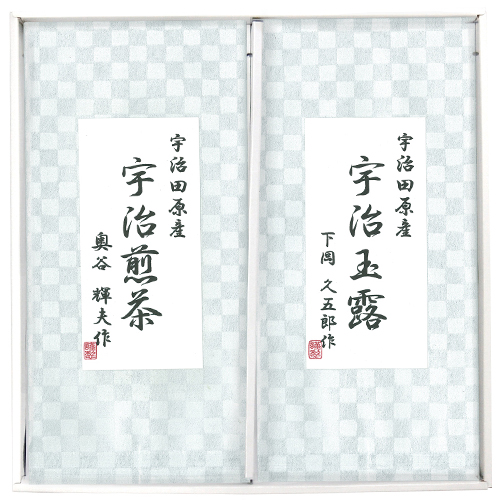 宇治田原産
宇治玉露
下岡 久五郎作
宇治田原産
宇治煎茶
奥谷 輝夫作